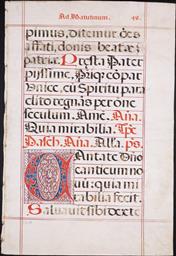 Ad Matutinum. 49.
pimus, Ditemur oēs
affati, donis beatae
patriae. Presta Pater
pijssime, Patriq; cōpar
Unice, cū Spiritu para
clito regnās per ōne
seculum. Amē. Aña.
Quia mirabilia. Tpe
Pasch. Aña. Alla. ps.
Cantate Dño
canticum no
vu: quia mi
rabilia fecit.
Saluauit sibi dexte